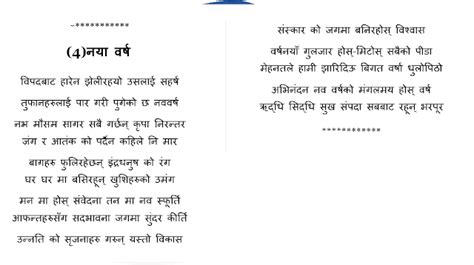 ~***********
(4)नया वर्ष
विपदबाट हारेन झेलीरहयो उसलाई सहर्ष
तुफानहरुलाई पार गरी पुगेको छ नववर्ष
नभ मौसम सागर सबै गर्छन् कृपा निरन्तर
जंग र आतंक को पर्दैन कहिले नि मार
बागहरु फुलिरहेछन् इंद्रधनुष को रंग
घर घर मा बसिरहून् खुशिहरुको उमंग
मन मा होस् संवेदना तन मा नव स्फूर्ति
आफन्तहरुसँग सदभावना जगमा सुंदर कीर्ति
उन्नति को सृजनाहरु गरुन् यस्तो विकास
संस्कार को जगमा बनिरहोस् विश्वास
वर्षनयाँ गुलजार होस्-मिटोस् सबैको पीडा
मेहनतले हामी झारिदिऊ बिगत वर्षा धुलोपिठो
अभिनंदन नव वर्षको मंगलमय होस् वर्ष
ऋद्धि सिद्धि सुख संपदा सबबाट रहून् भरपूर
************